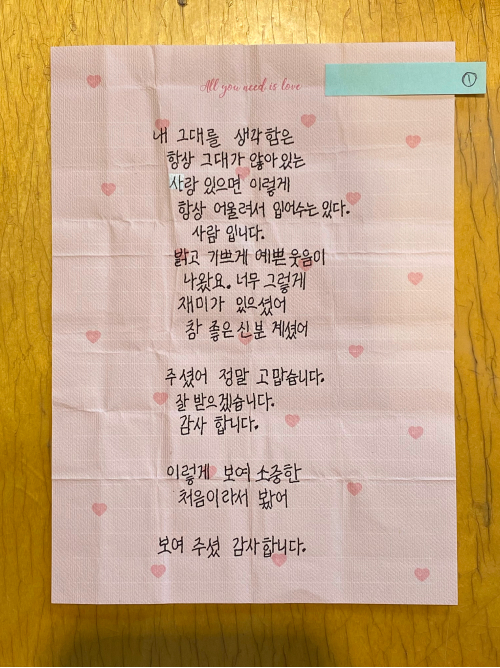 All you need is love
①
내 그대를 생각함은
항상 그대가 앉아있는
사랑 있으면 이렇게
항상 어울려서 입어수는 있다.
사람 입니다.
밝고 기쁘게 예쁜 웃음이
나왔요. 너무 그렇게
재미가 있으셨어
참 좋은 신분 계셨어
주셨어 정말 고맙습니다.
잘 받으겠습니다.
감사 합니다.
이렇게 보여 소중한
처음이라서 봤어
보여 주셨 감사합니다.